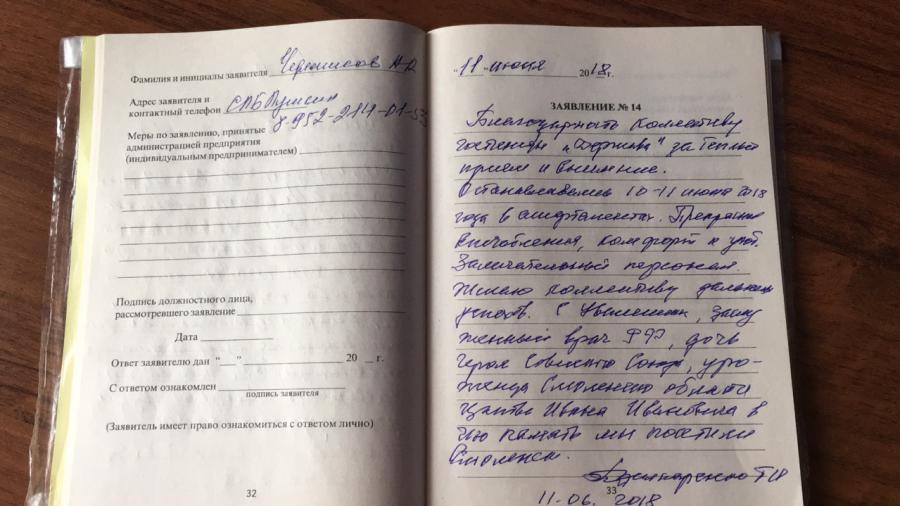 Фамилия и инициалы заявителя
Адрес заявителя и СПБ Пушкин
контактный телефон 8-952-214-01-53
Меры по заявлению, принятые
администрацией предприятия
(индивидуальным предпринимателем)
Подпись должностного лица,
рассмотревшего заявление
Дата
Ответ заявителю дан " " 20 г.
С ответом ознакомлен
подпись заявителя
(Заявитель имеет право ознакомиться с ответом лично)
32
"11" июня 2018г.
ЗАЯВЛЕНИЕ № 14
Благодарность Коллективу
гостиницы за теплый
прием и внимание.
Останавливались 10-11 июня 2018
года в апартаментах. Прекрасные
впечатления, комфорт и уют.
Замечательный персонал.
Желаю коллективу дальнейших
успехов. С уважением, заслу
женный врач РФ, дочь
Героя Советского Союза, уро-
женца Смоленской области
Ивана Ивановича в
чью память мы посетили
Смоленск.
33
11-06. 2018